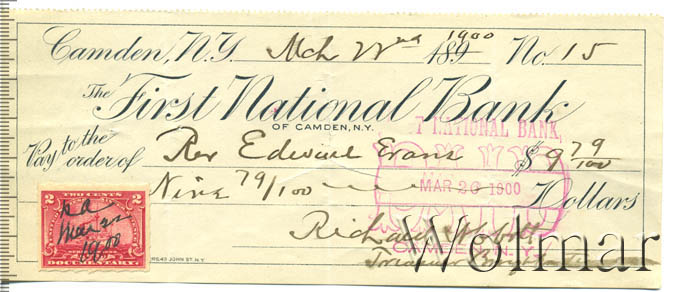 Camden, N.Y. Mch 22nd 1900 189 No. 15
The First National Bank
OF CAMDEN, N.Y.
Pay to the order of Rev Edward Evans $ 9 79/100
Nine 79/100 Dollars
T NATIONAL BANK,
PAID
MAR 26 1900
CAMDEN, N.Y.
Richard
Treasurer
TWO CENTS
2 2
DOCUMENTARY
Mar 22
1900
43 JOHN ST. N.Y.
Wolmar